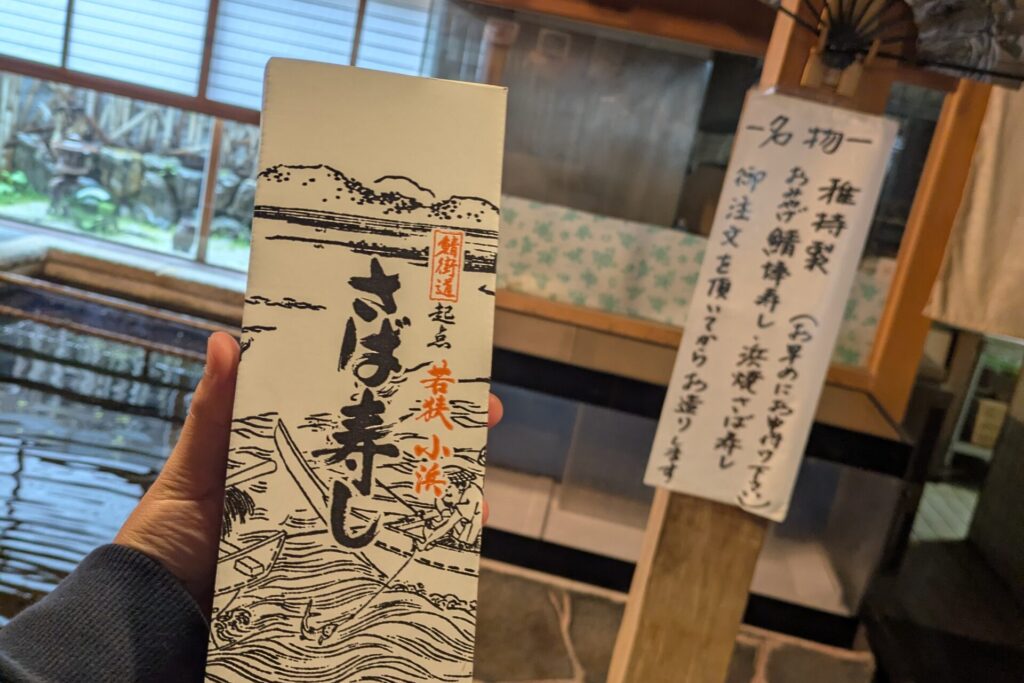 鯖街道
起点
若狭小浜
さば寿し
名物
雅特製
おみやげ鯖棒寿し・浜焼さば寿し
御注文を頂いてからお造りします
(お早めにお申付け下さい)